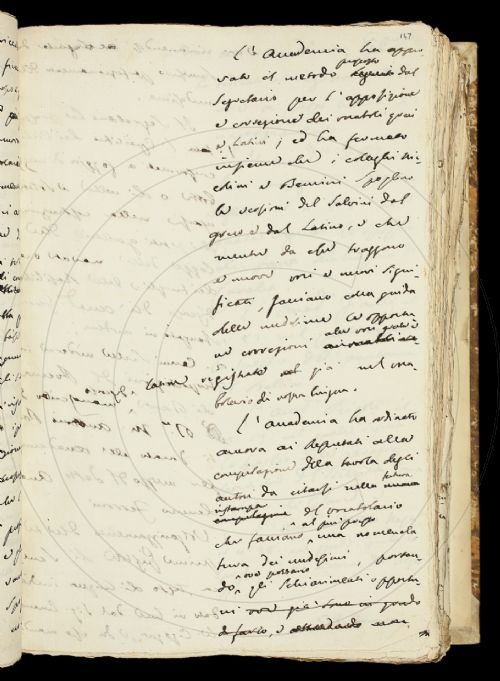 147
L'Accademia ha appro
vato il metodo proposto seguito dal
Segretario per l'apposizione
e correzione dei vocaboli greci
e Latini; ed ha fermato
insieme che i colleghi Ni-
colini e Bencini spoglino
le versioni del Salvini dal
greco e dal Latino, e che
mentre da che traggono
e nuove voci e nuovi signi
ficati, facciano colla guida
delle medesime le opportu
ne correzioni alle voci greche e
Latine registrate già nel voca
bolario di nostra lingua.
L'Accademia ha ordinato
ancora ai Deputati alla
compilazione della tavola degli
autori da citarsi nella futura
ristampa
compilazione del vocabolario
che facciano al più presto una nomencla
tura dei medesimi, ponen-
do ove possano gli schiarimenti opportu
ni
di fatto, e